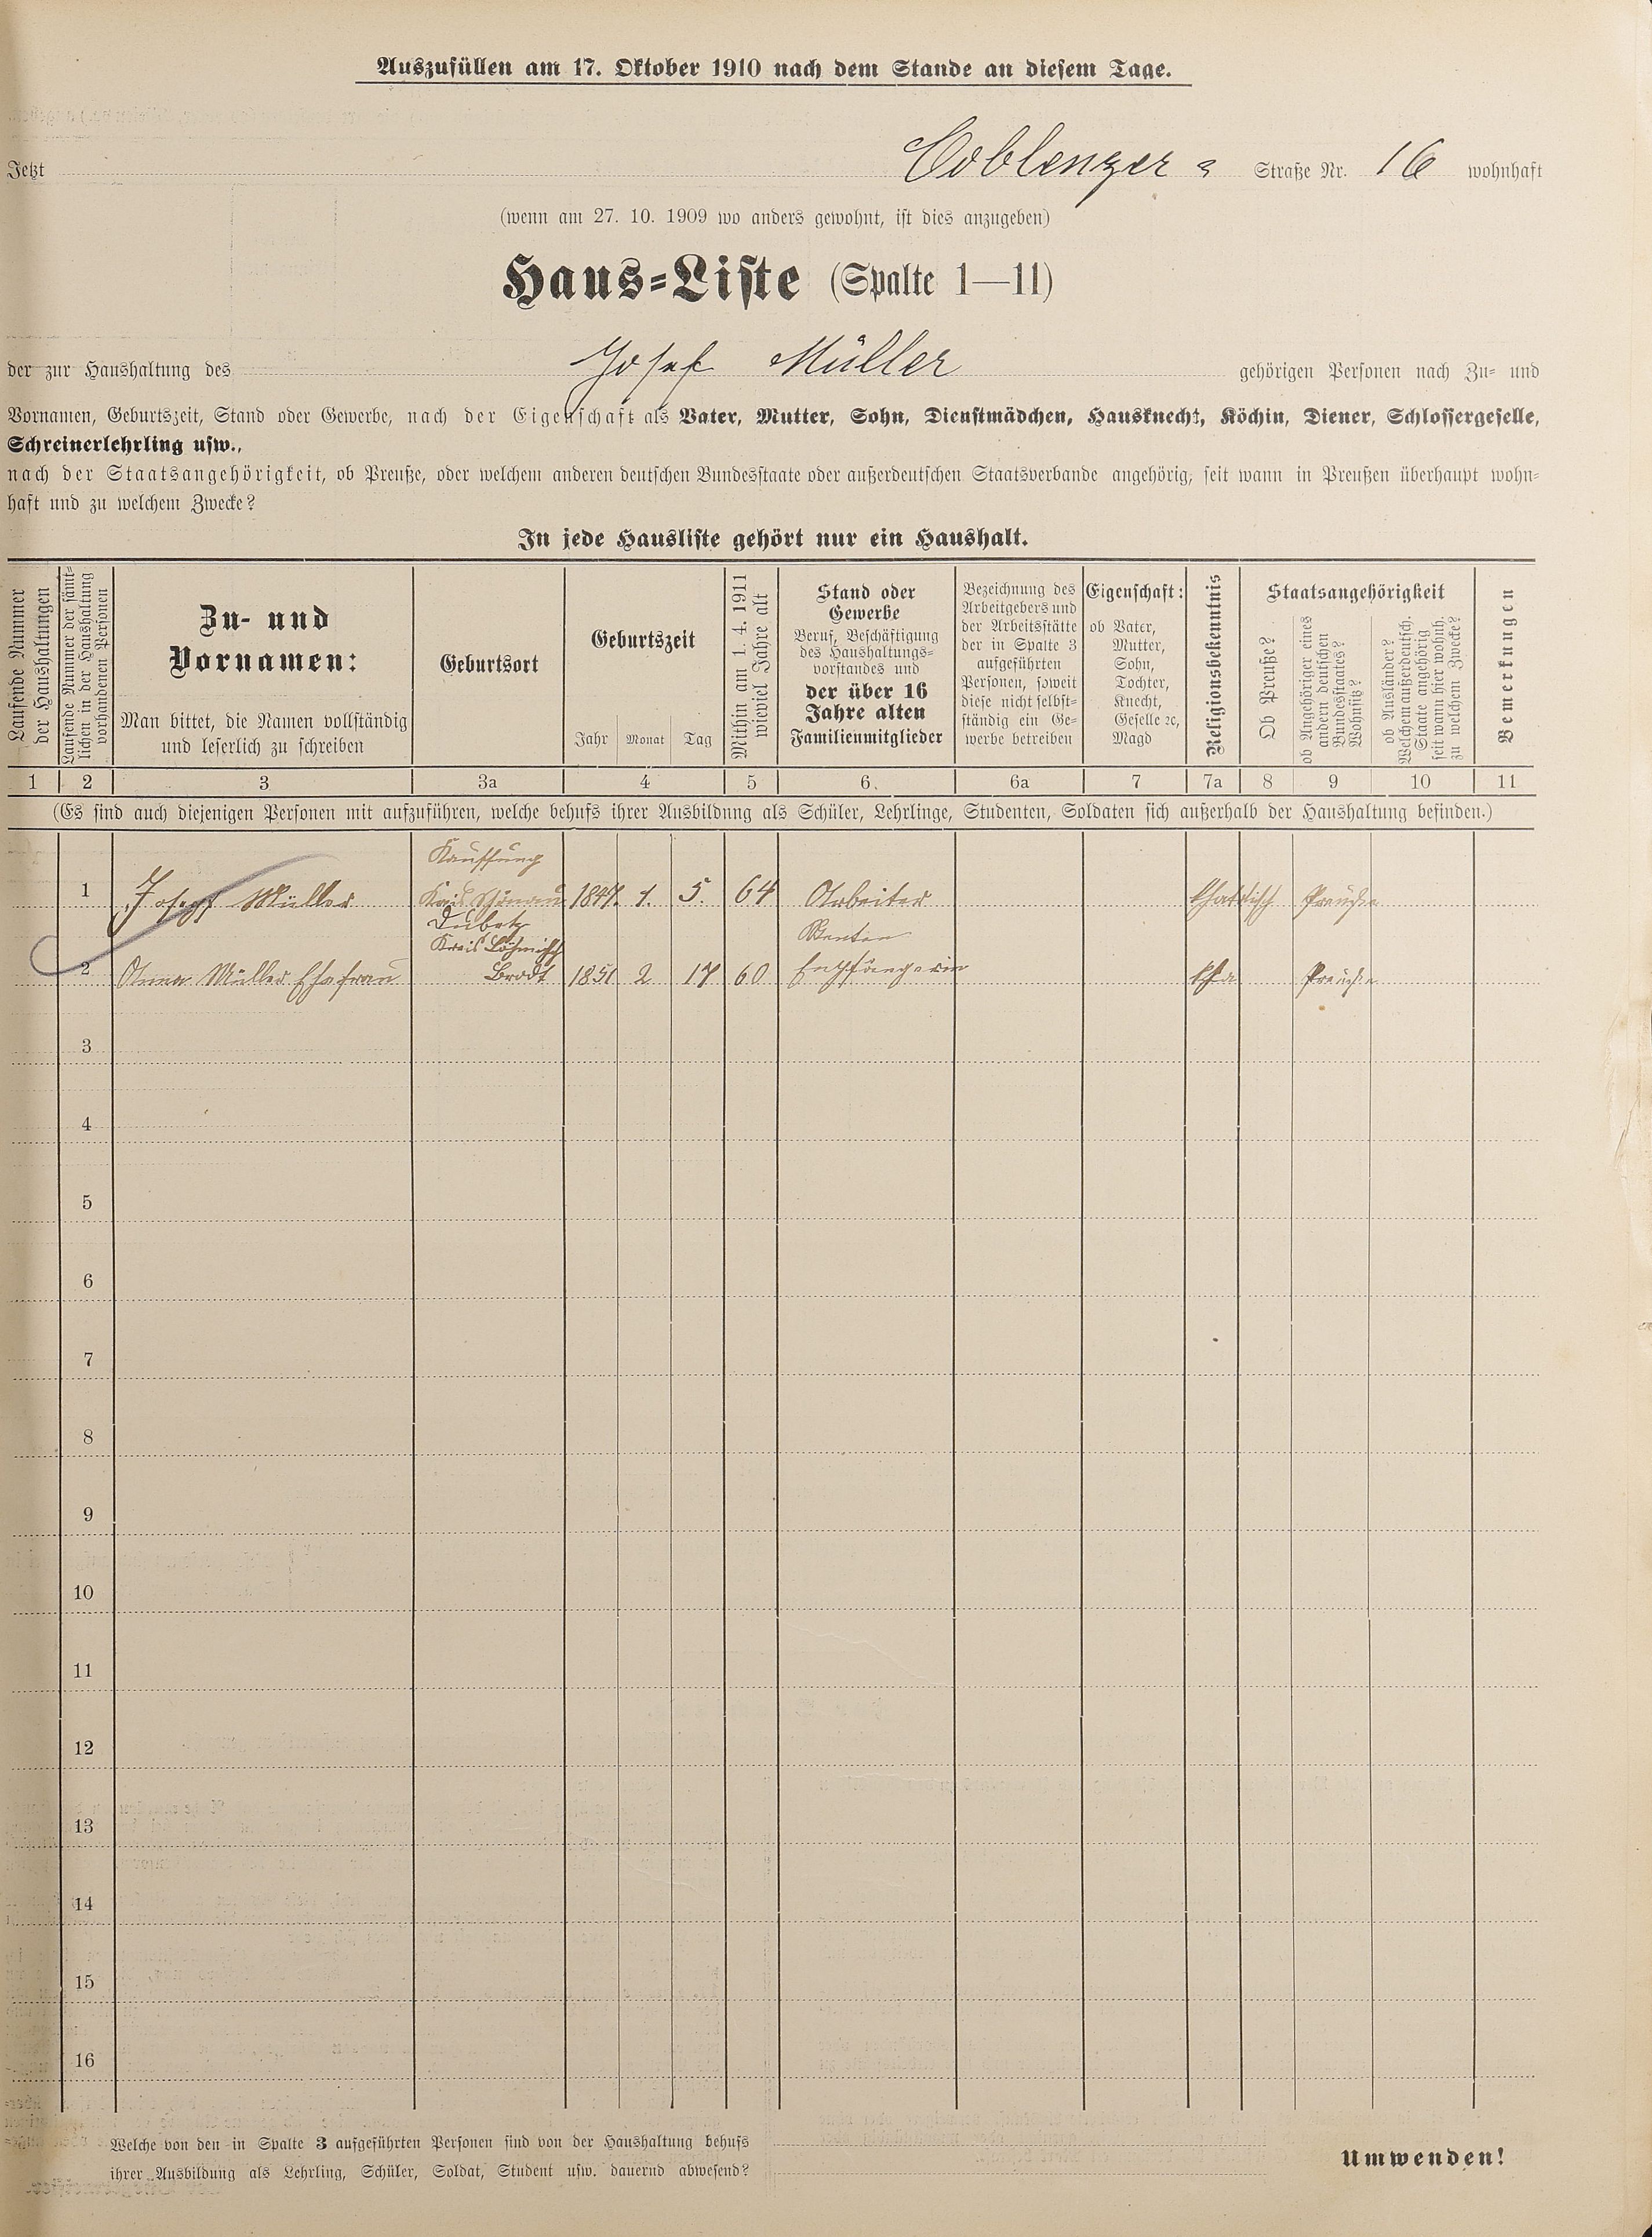 Auszufüllen am 17. Oktober 1910 nach dem Stande an diesem Tage.
Jetzt Coblenzer = Straße Nr. 16 wohnhaft
(wenn am 27. 10. 1909 wo anders gewohnt, ist dies anzugeben)
Haus=Liste (Spalte 1—11)
der zur Haushaltung des Josef Müller gehörigen Personen nach Zu= und
Vornamen, Geburtszeit, Stand oder Gewerbe, nach der Eigenschaft als Vater, Mutter, Sohn, Dienstmädchen, Hausknecht, Köchin, Diener, Schlossergeselle,
Schreinerlehrling usw.,
nach der Staatsangehörigkeit, ob Preuße, oder welchem anderen deutschen Bundesstaate oder außerdeutschen Staatsverbande angehörig; seit wann in Preußen überhaupt wohn=
haft und zu welchem Zwecke?
In jede Hausliste gehört nur ein Haushalt.
Laufende Nummer
der Haushaltungen
Laufende Nummer der sämt=
lichen in der Haushaltung
vorhandenen Personen
Zu- und
Vornamen:
Man bittet, die Namen vollständig
und leserlich zu schreiben
Geburtsort
Geburtszeit
Jahr Monat Tag
Mithin am 1. 4. 1911
wieviel Jahre alt
Stand oder
Gewerbe
Beruf, Beschäftigung
des Haushaltungs=
vorstandes und
der über 16
Jahre alten
Familienmitglieder
Bezeichnung des
Arbeitgebers und
der Arbeitsstätte
der in Spalte 3
aufgeführten
Personen, soweit
diese nicht selbst=
ständig ein Ge=
werbe betreiben
Eigenschaft:
ob Vater,
Mutter,
Sohn,
Tochter,
Knecht,
Geselle ec,
Magd
Religionsbekenntnis
Staatsangehörigkeit
Ob Preuße?
ob Angehöriger eines
andern deutschen
Bundesstaates?
Wohnsitz?
ob Ausländer?
Welchem außerdeutsch.
Staate angehörig
seit wann hier wohnh.
zu welchem Zwecke?
Bemerkungen
1 2 3 3a 4 5 6. 6a 7 7a 8 9 10 11
(Es sind auch diejenigen Personen mit aufzuführen, welche behufs ihrer Ausbildung als Schüler, Lehrlinge, Studenten, Soldaten sich außerhalb der Haushaltung befinden.)
Kauffung
1 Josef Müller Kreis Schönau 1847. 1. 5. 64 Arbeiter Preuße
Kreis Renten
2 Anna Müller Ehefrau Brodt 1851 2 17 60 Empfängerin Preuße
3
4
5
6
7
8
9
10
11
12
13
14
15
16
Welche von den in Spalte 3 aufgeführten Personen sind von der Haushaltung behufs
ihrer Ausbildung als Lehrling, Schüler, Soldat, Student usw. dauernd abwesend?
Umwenden!